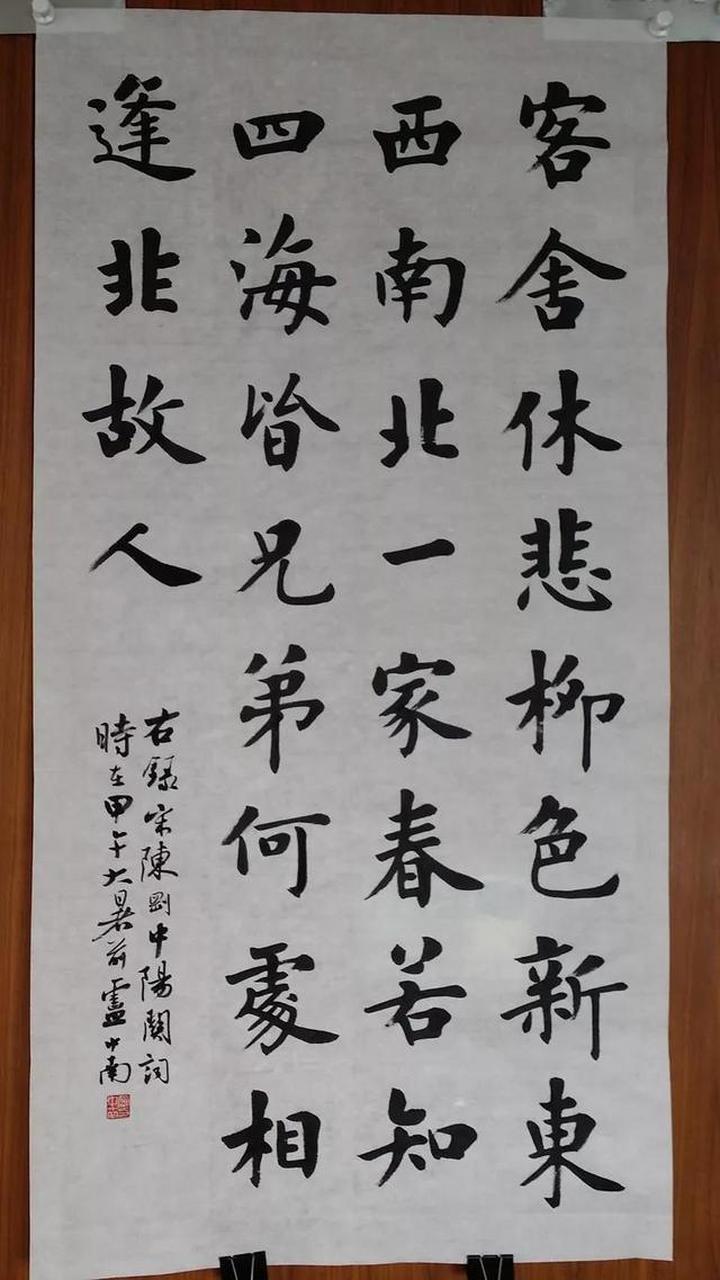 客舍休悲柳色新東
西南北一家春若知
四海皆兄弟何處相
逢非故人
右錄宋陳剛中陽關詞
時在甲午大暑前盧中南